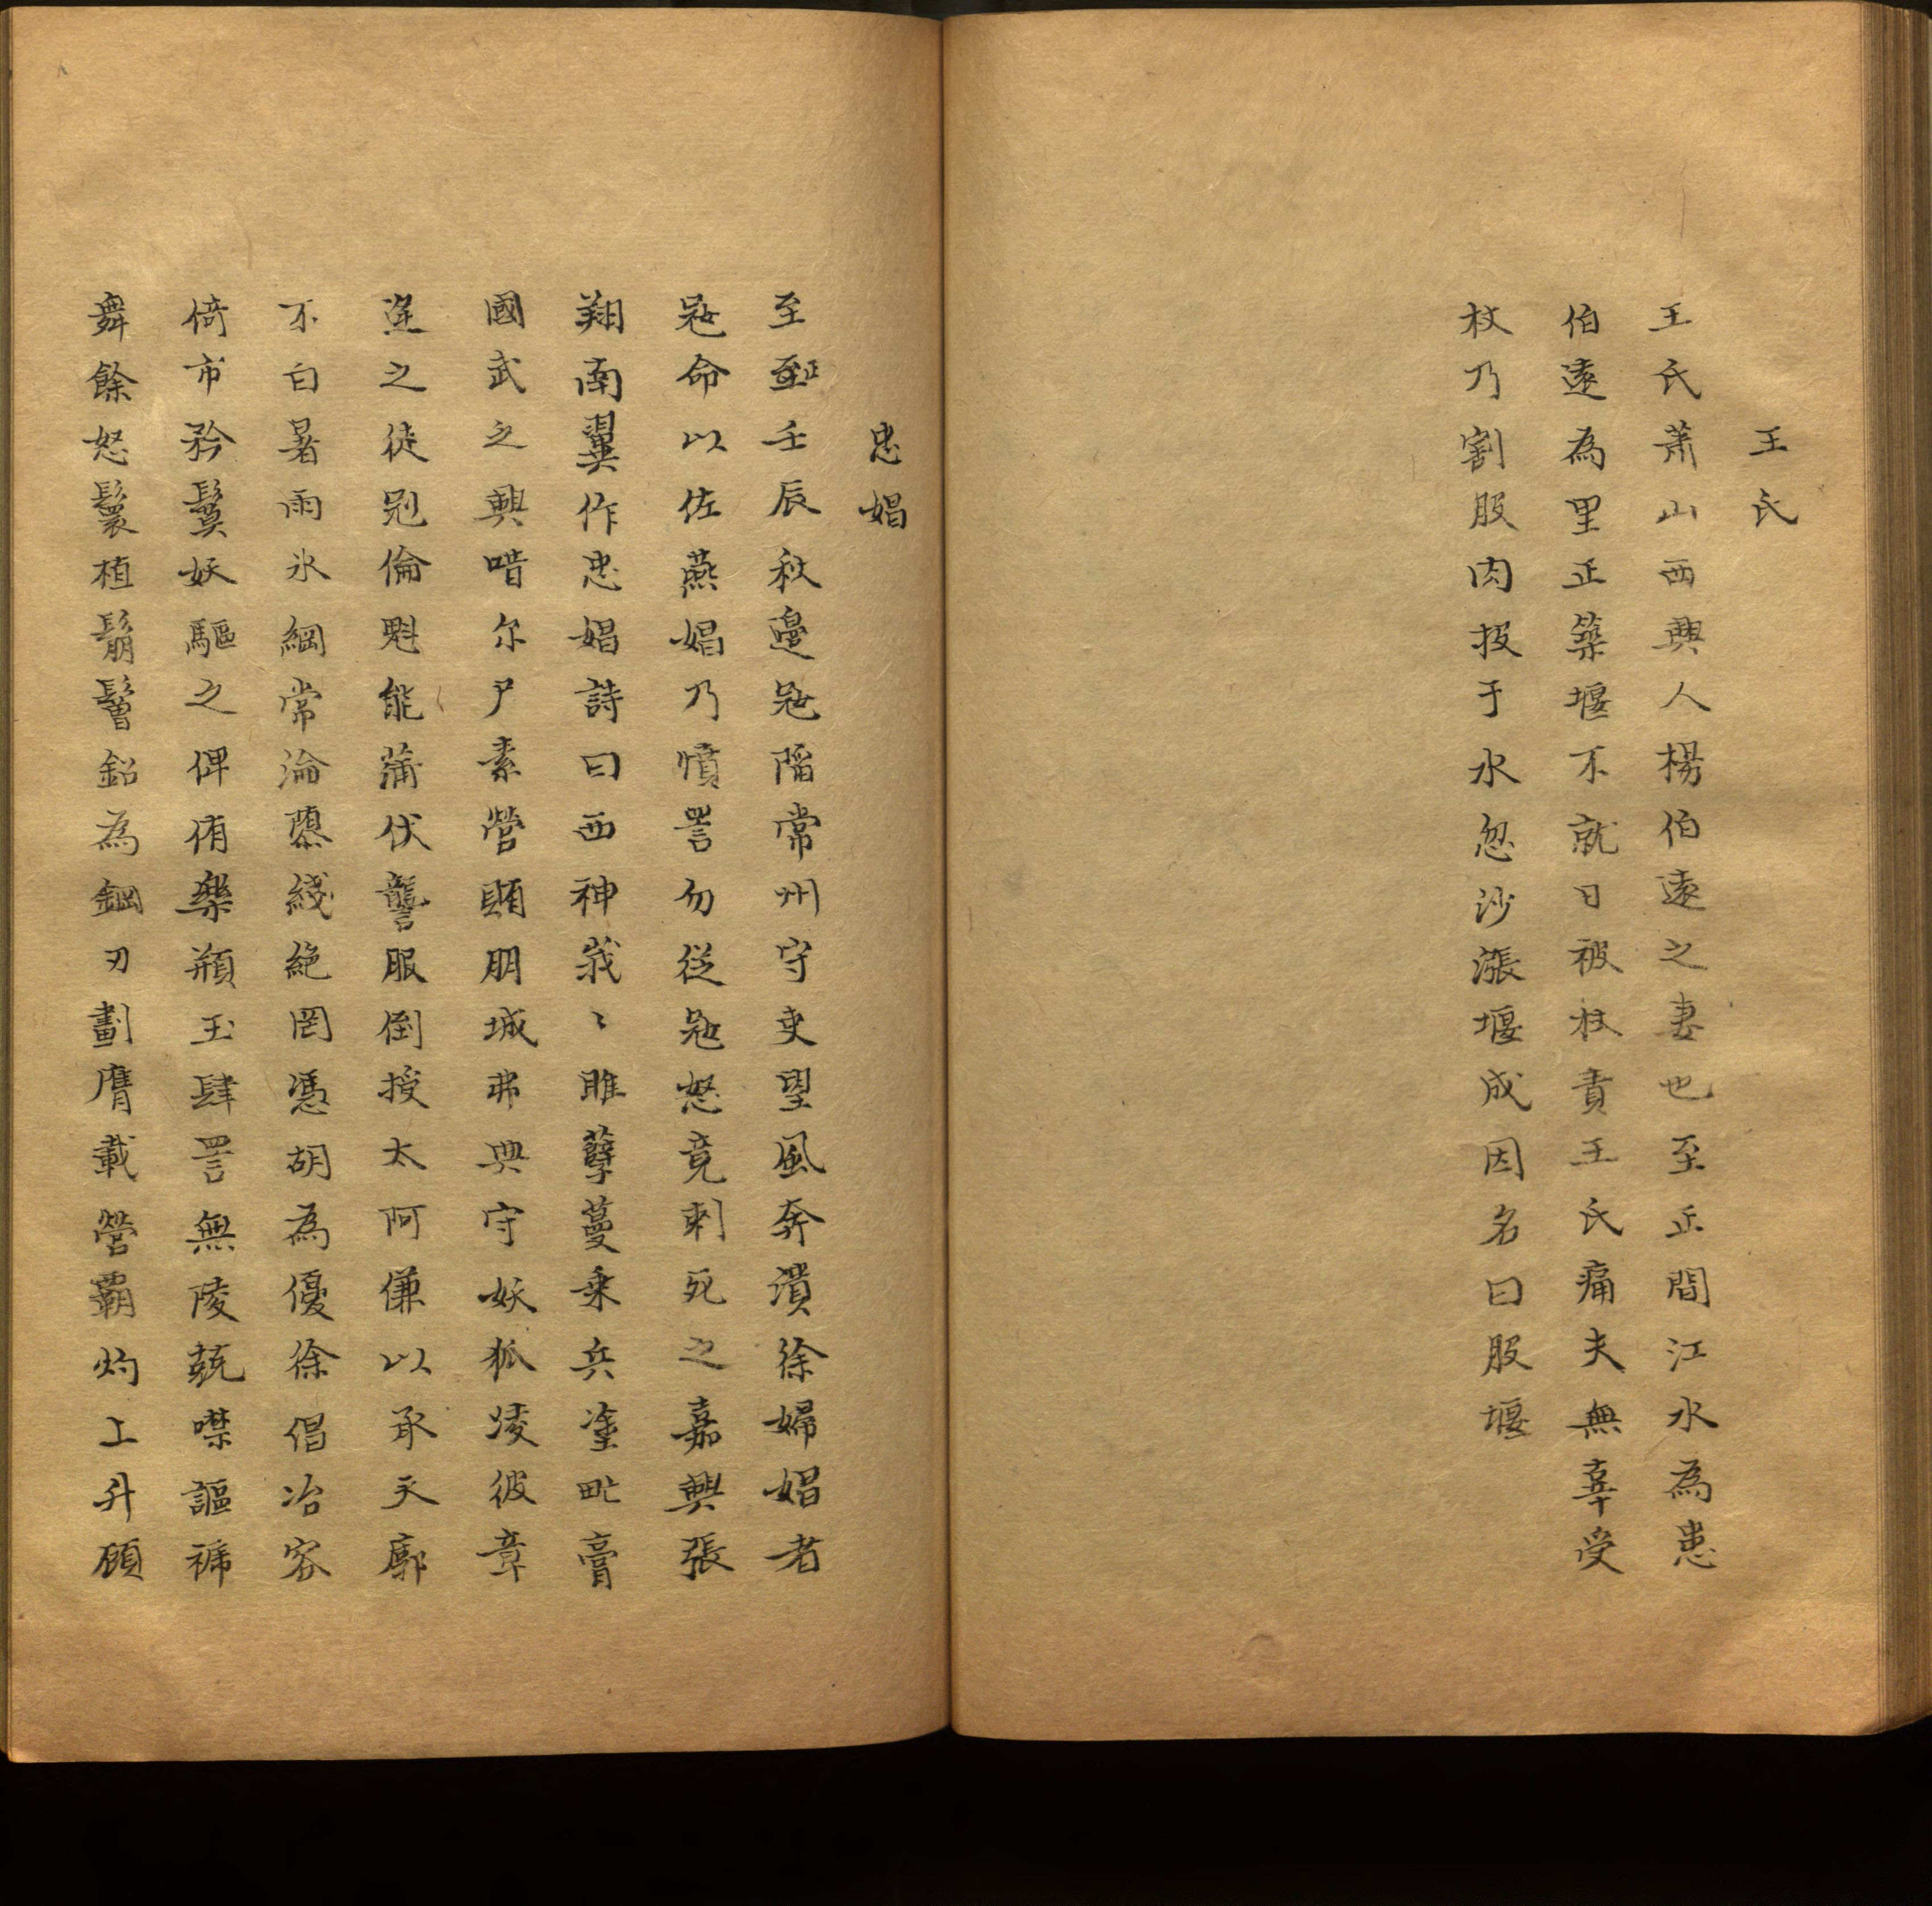 王氏
王氏蕭山西興人楊伯遠之妻也至正間江水為患
伯遠為里正築堰不就日被杖責王氏痛夫無辜受
杖乃割股肉投于水忽沙漲堰成因名曰股堰
忠娼
至至正壬辰秋邊寇陷常州守吏望風奔潰徐婦娼者
寇命以佐燕娼乃憤詈勿從寇怒竟刺死之嘉興張
翔南翼作忠娼詩曰西神峩〻雎孽蔓乘兵塗毗膏
國武之興唶尔尸素營頤朋城弗與守妖狐凌彼章
逢之徒冠倫魁能蒲伏讋服倒授太阿傔以承天廓
不白暑雨氷綱常淪隳綫絶罔憑胡為優徐倡冶容
倚市矜鬒妖驅之俾侑樂頩玉肆詈無陵兢噤謳褫
舞餘怒鬟植鬅鬙鉛為鋼刃劃膺載營霸灼上升願